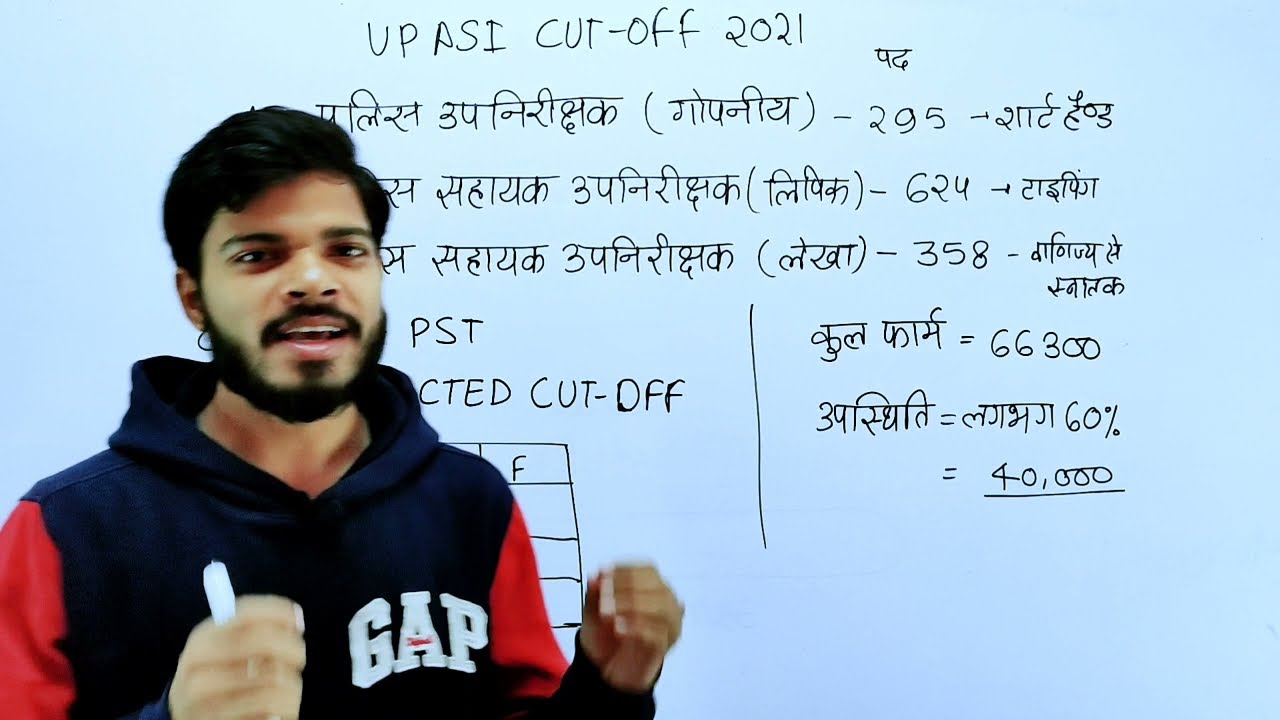 UP ASI CUT-OFF 2021
पद
उपनिरीक्षक (गोपनीय) - 295 → शार्ट हैण्ड
सहायक उपनिरीक्षक (लिपिक) - 624 → टाइपिंग
सहायक उपनिरीक्षक (लेखा) - 358 - वाणिज्य से
स्नातक
PST
CTED CUT-OFF
F
कुल फार्म = 66300
उपस्थिति = लगभग 60%
= 40,000
GAP